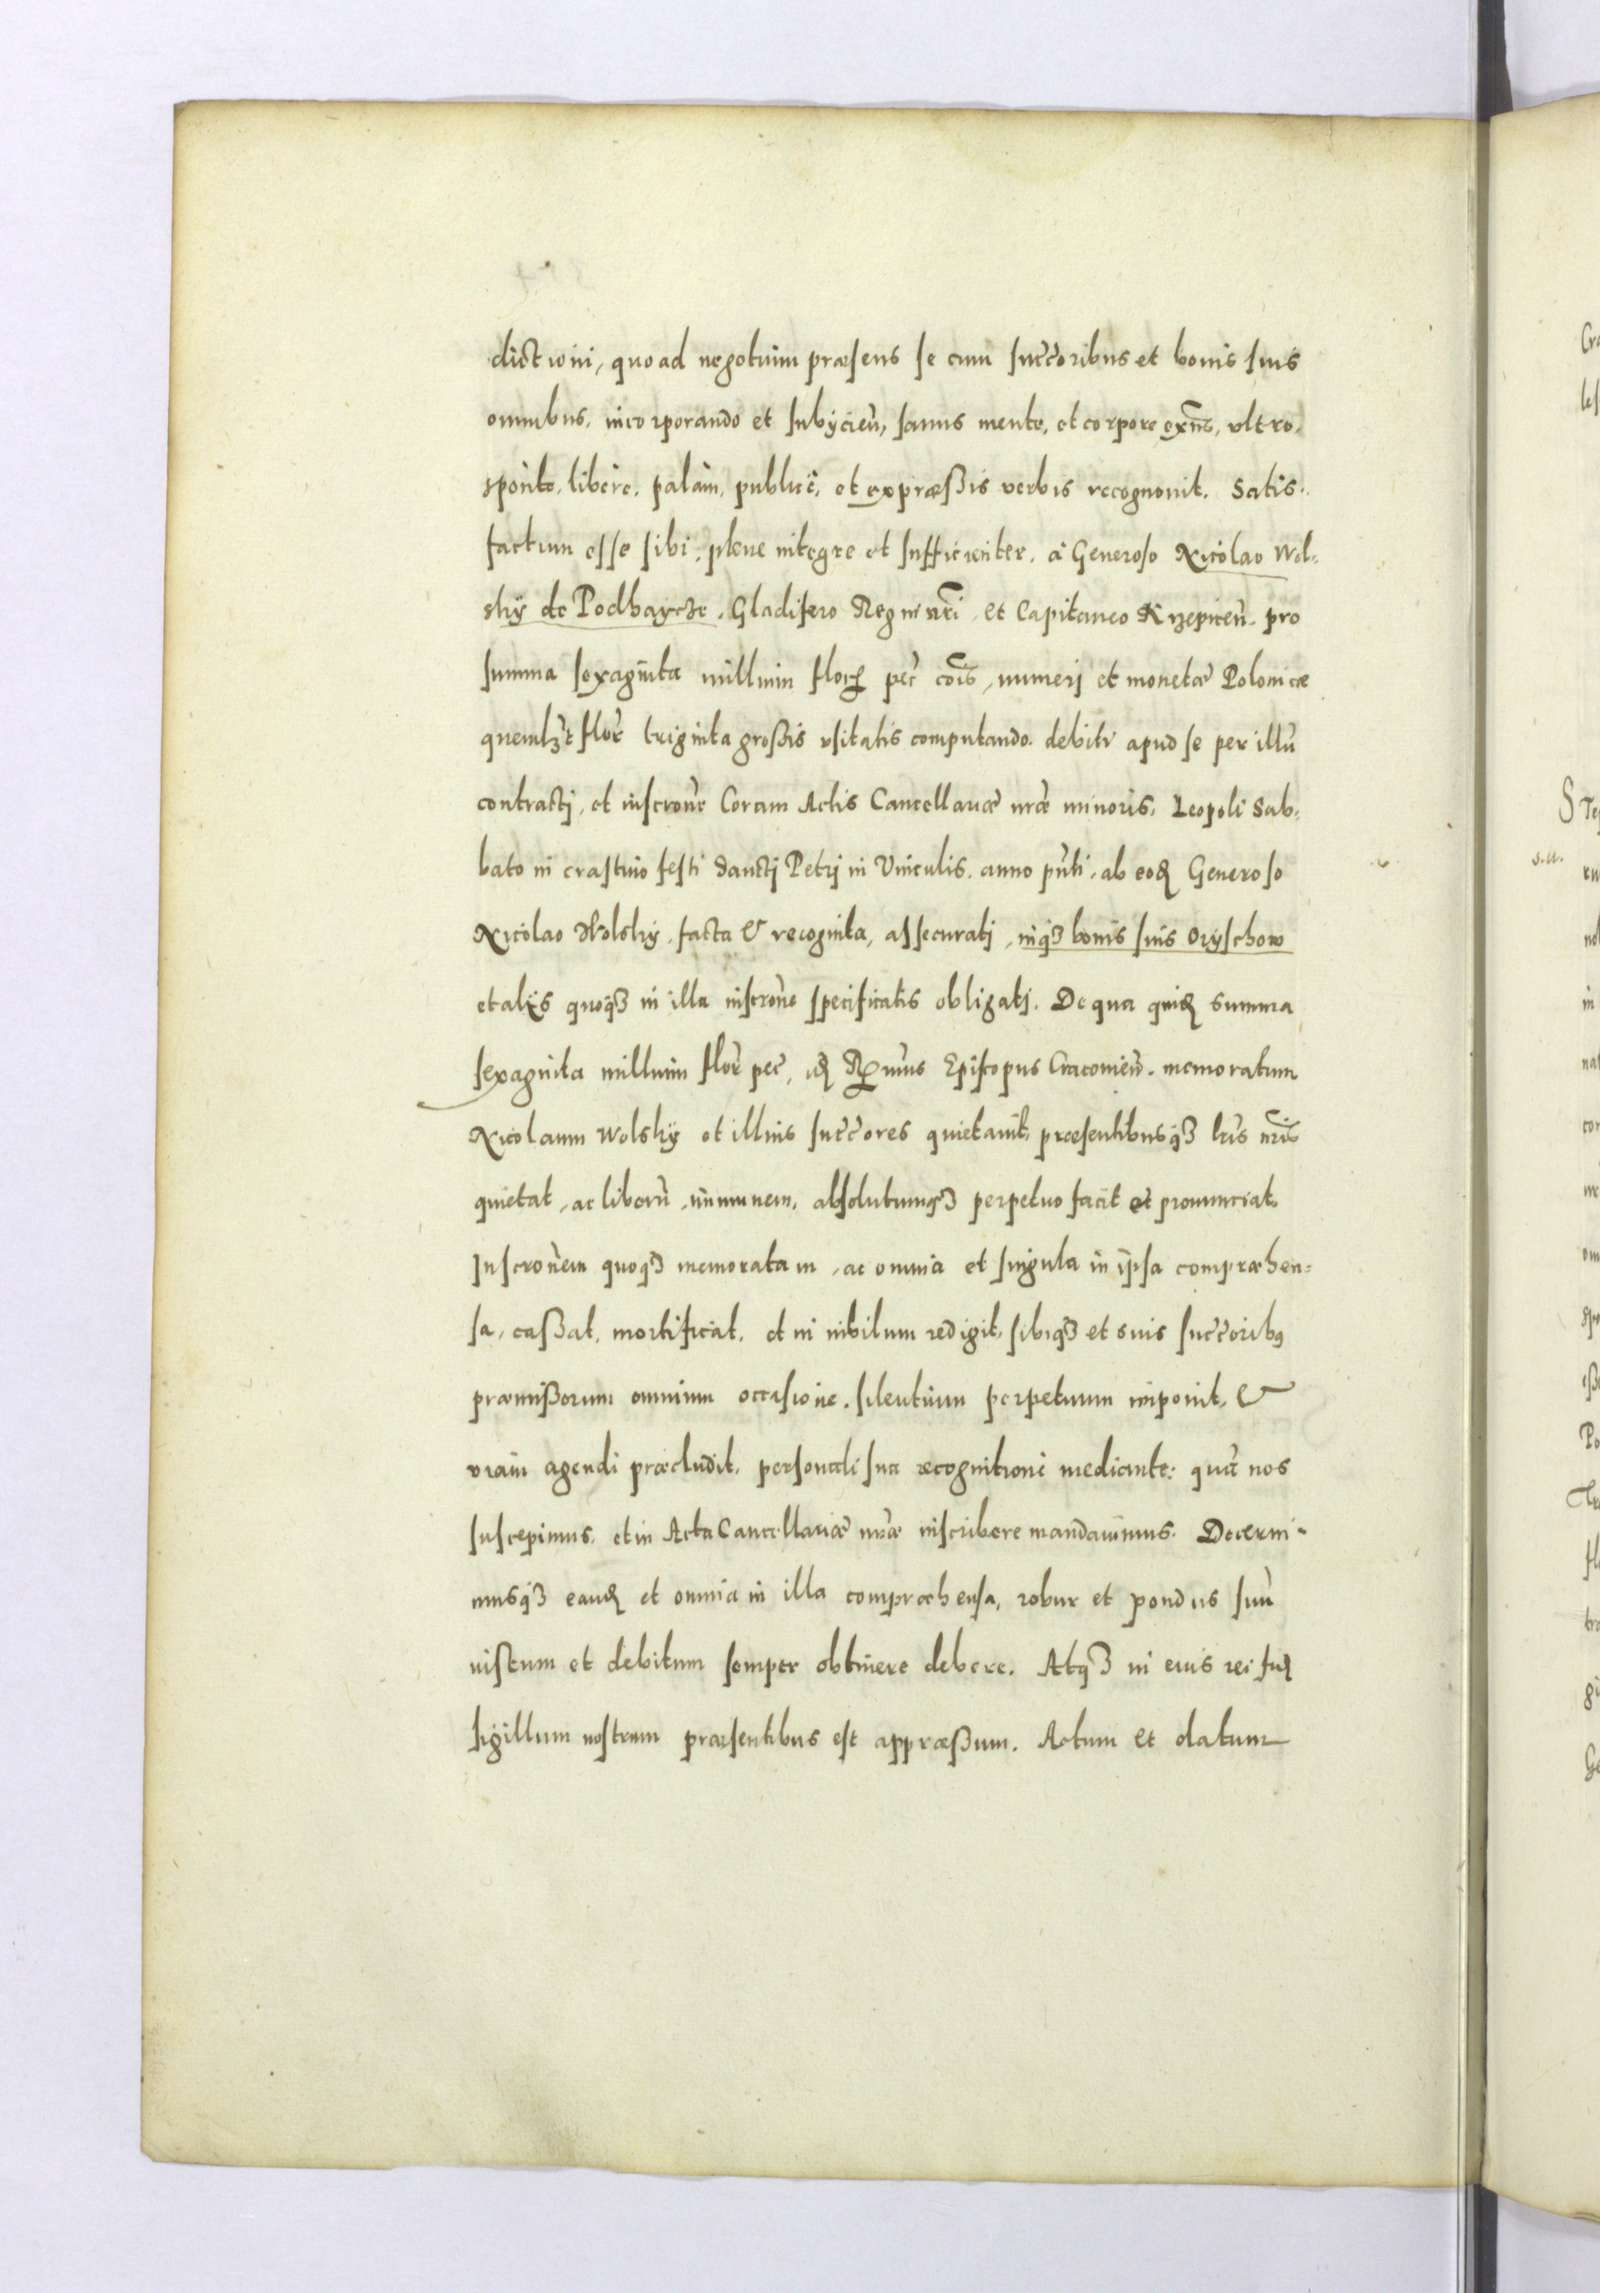 dictioni, quoad negotium præsens se cum succ̃oribus et bonis suis
omnibus, incorporando et subÿcień, sanus mente, et corpore exñs, ultro,
sponte, libere, palam, publicè, et expræßis verbis recognovit. Satis-
factum esse sibi, plene integre et sufficienter, à Generoso Nicolao Wol-
skÿ de Podhaycze, Gladifero Regni nr̃i, et Capitaneo Krzepiceń. pro
summa sexaginta millium flor̃ pec̃ cõis, numeri et monetæ Polonicæ
quemlib̃t flor̃ triginta großis usitatis computando, debiti apud se per illũ
contracti, et inscrone Coram Actis Cancellariæ nr̃æ minoris, Leopoli Sab-
bato in crastino festi Sancti Petri in Vinculis, anno pñti, ab eod̃ Generoso
Nicolao Wolskÿ, facta & recognita, assecurati, inq3 bonis suis Oryschow
et alÿs quoq3 in illa inscrõne specificatis obligati. De qua quid̃ summa
sexaginta millium flor̃ pec̃, id̃ R̃mus Episcopus Cracovień. memoratum
Nicolaum Wolskÿ et illius succ̃ores quietavit, præsentibusq3 lr̃is nr̃is
quietat, ac liberũ, immunem, absolutumq3 perpetuo facit et pronunciat.
Inscrõnem quoq3 memoratam, ac omnia et singula in ipsa compræhen-
sa, caßat, mortificat, et in nihilum redigit, sibiq3 et suis succ̃orib9
præmißorum omnium occasione, silentium perpetuum imponit, &
viam agendi præcludit, personali sua recognitione mediante: quã nos
suscepimus, et in Acta Cancellariæ nr̃æ inscribere mandavimus. Decerni-
musq3 eand̃ et omnia in illa compræhensa, robur et pondus suũ
iustum et debitum semper obtinere debere. Atq3 in eius rei fid̃
sigillum nostrum præsentibus est appræßum. Actum et datum